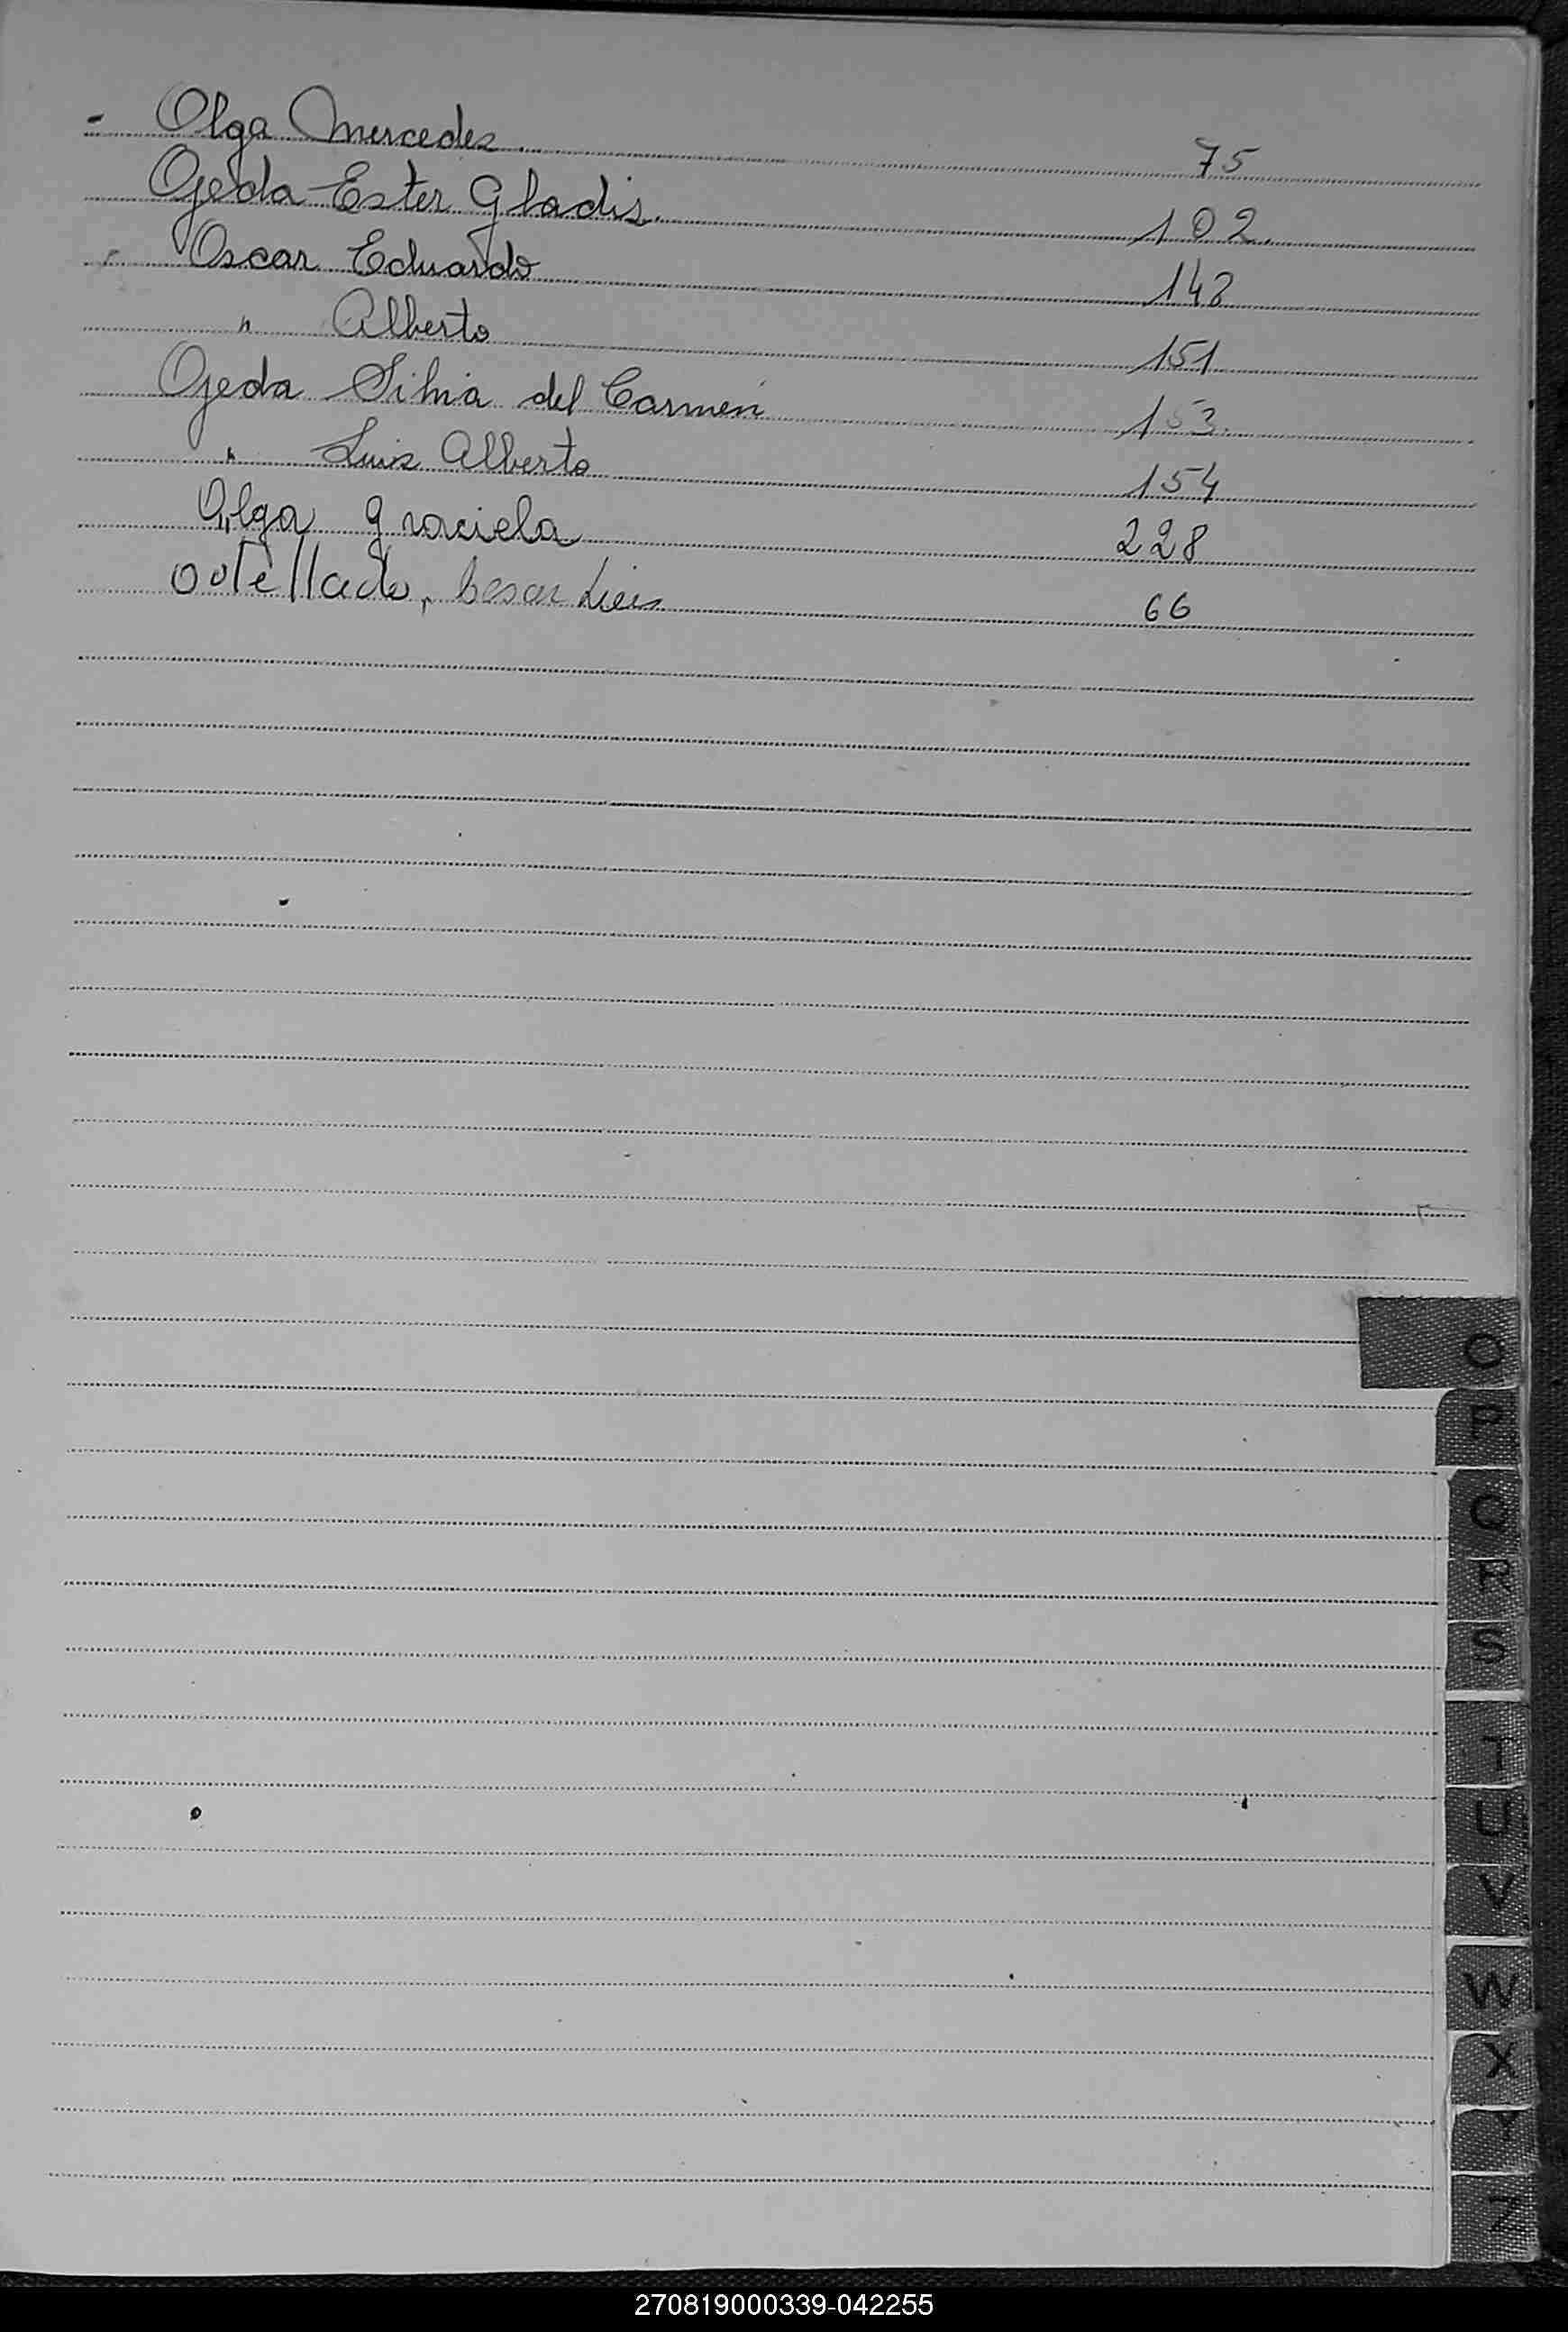 - Olga Mercedes 75
Ojeda Ester Gladis. 102.
Oscar Eduardo 148
" Alberto 151
Ojeda Silvia del Carmen 153.
" Luis Alberto 154
Olga Graciela 228
66
O
P
Q
R
S
T
U
V
W
X
Y
Z
270819000339-042255